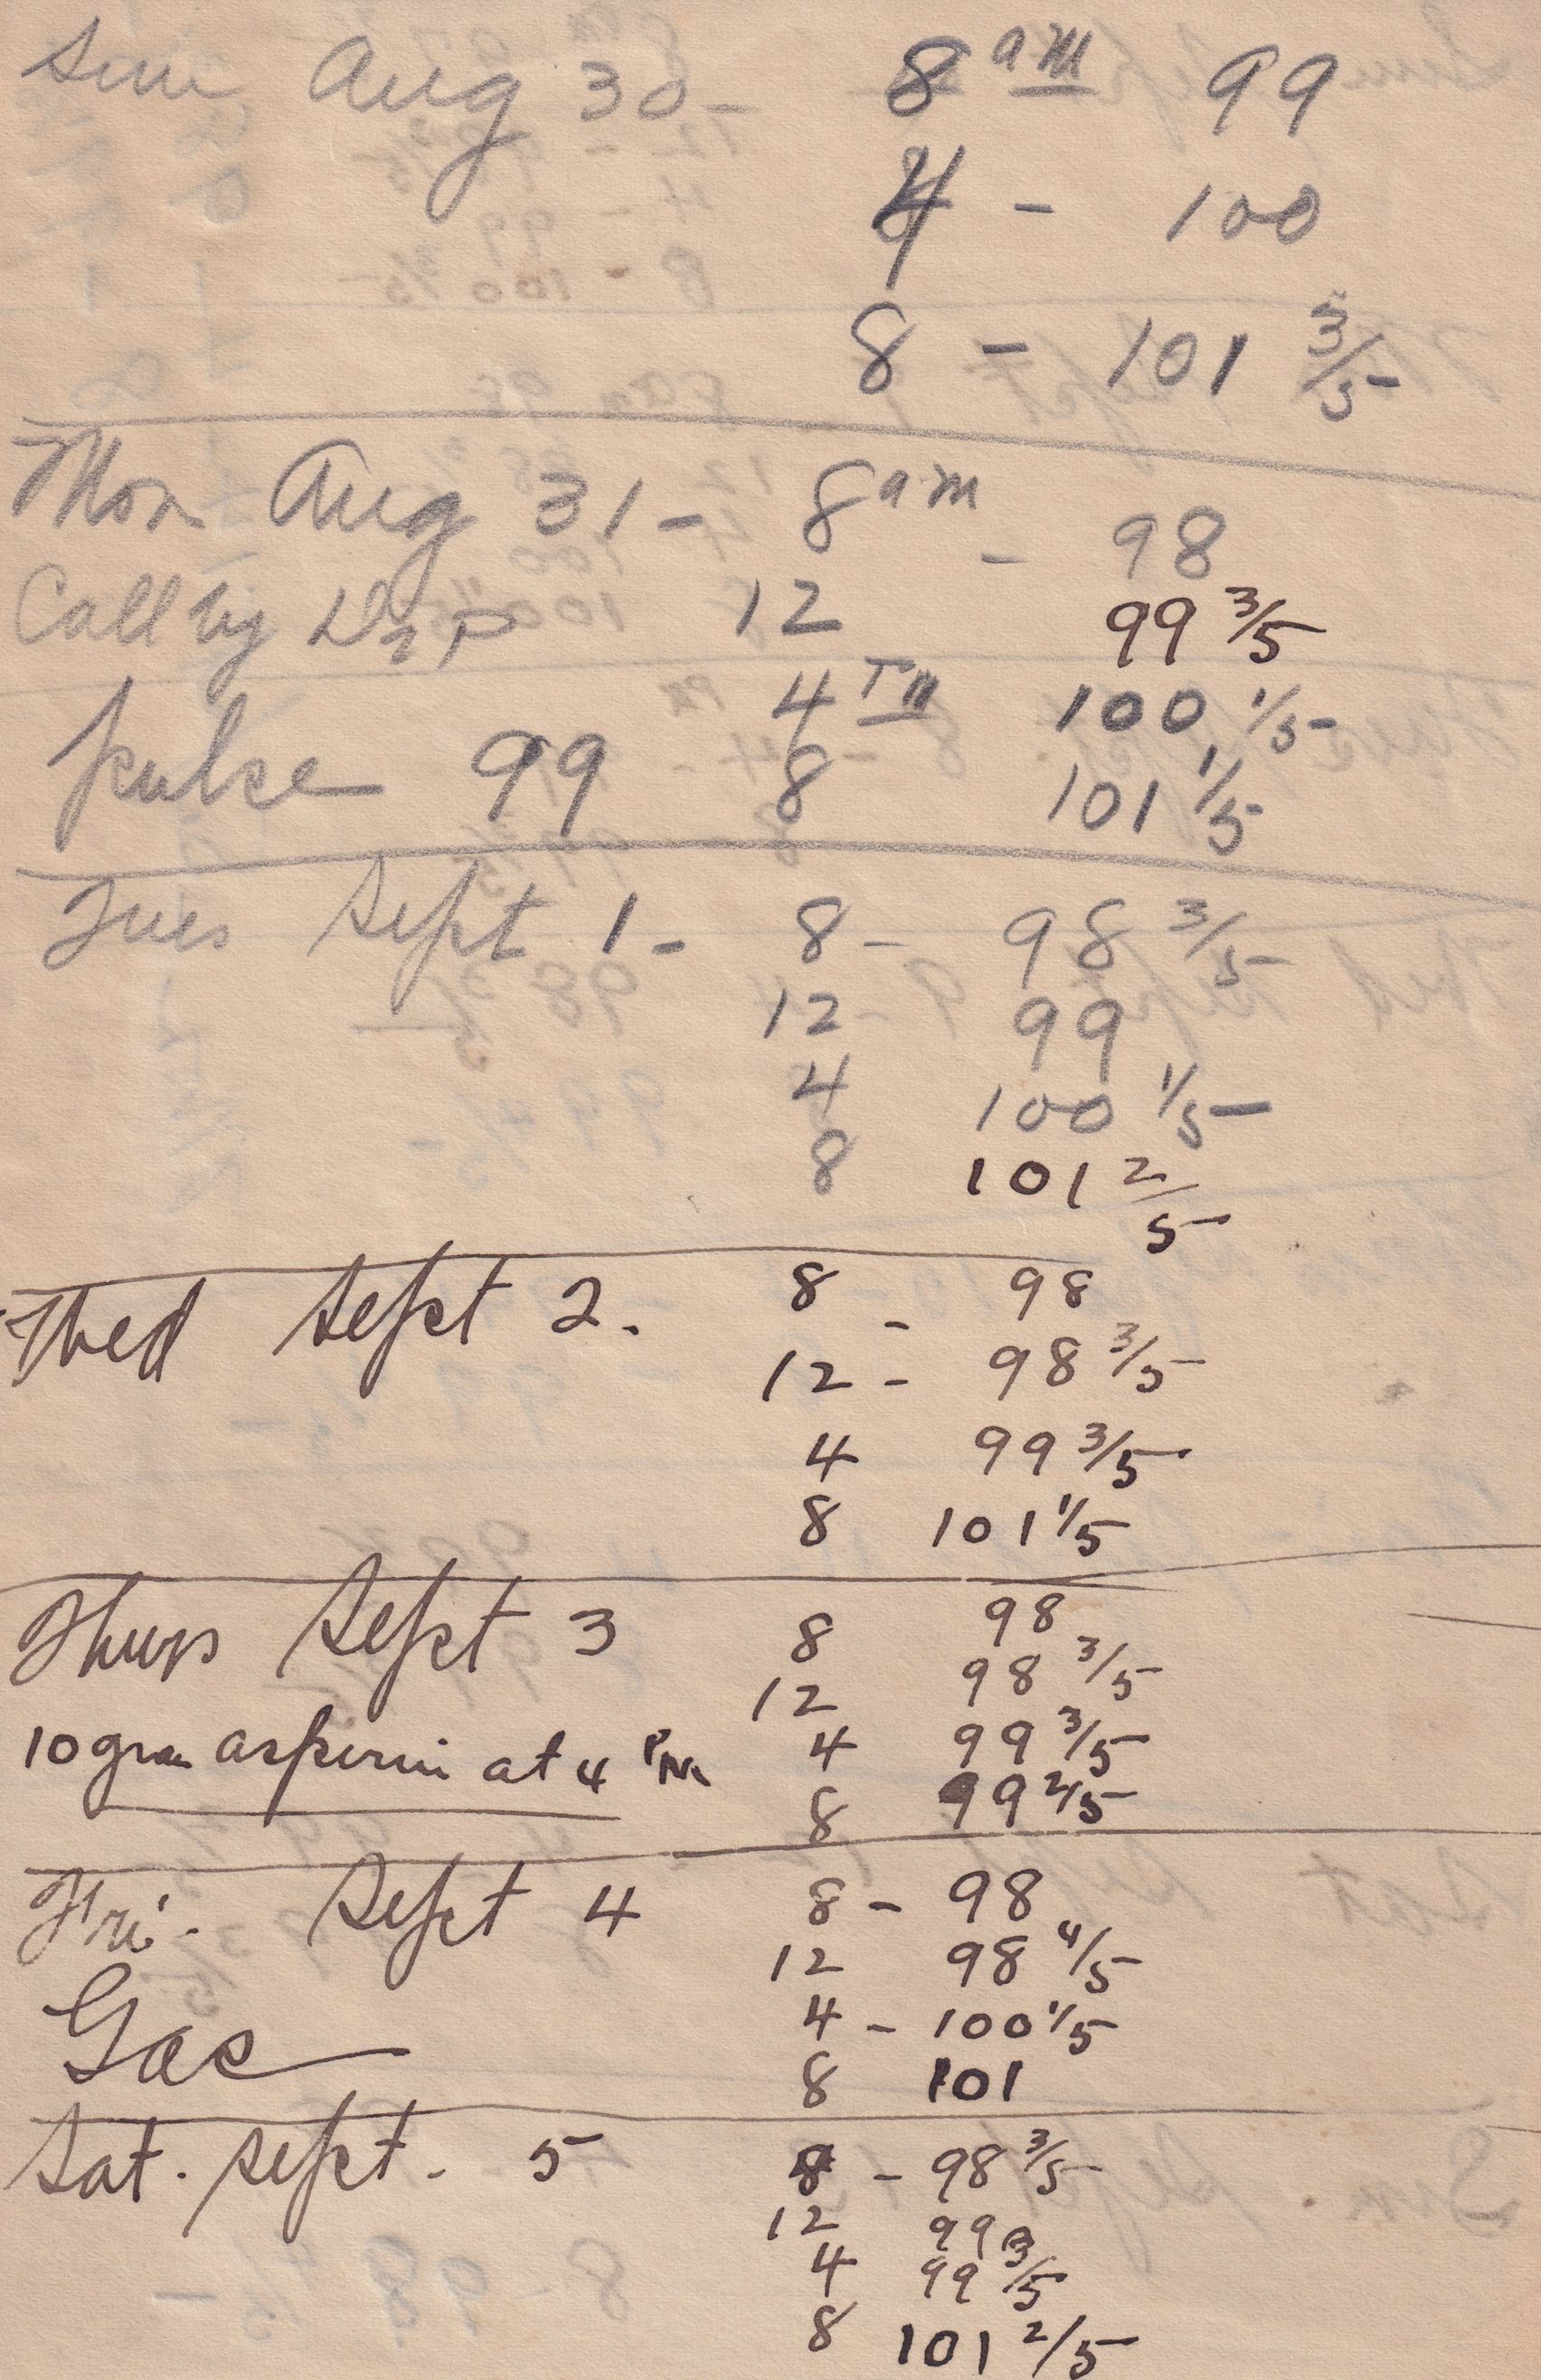 Sun Aug 30 - 8 am 99
4 - 100
8 - 101 3/5
Mon Aug 31 - 8 am - 98
Call by Dr P 12 99 3/5
4 PM 100 1/5
pulse 99 8 101 1/5
Tues Sept 1 - 8 - 98 3/5
12 99
4 100 1/5
8 101 2/5
Wed Sept 2. 8 - 98
12 - 98 3/5
4 99 3/5
8 101 1/5
Thurs Sept 3 8 98
12 98 3/5
10 gran asperin at 4 PM 4 99 3/5
8 99 2/5
Fri. Sept 4 8 - 98
12 98 4/5
Gas 4 - 100 1/5
8 101
Sat. Sept. 5 8 - 98 3/5
12 99
4 99 3/5
8 101 2/5